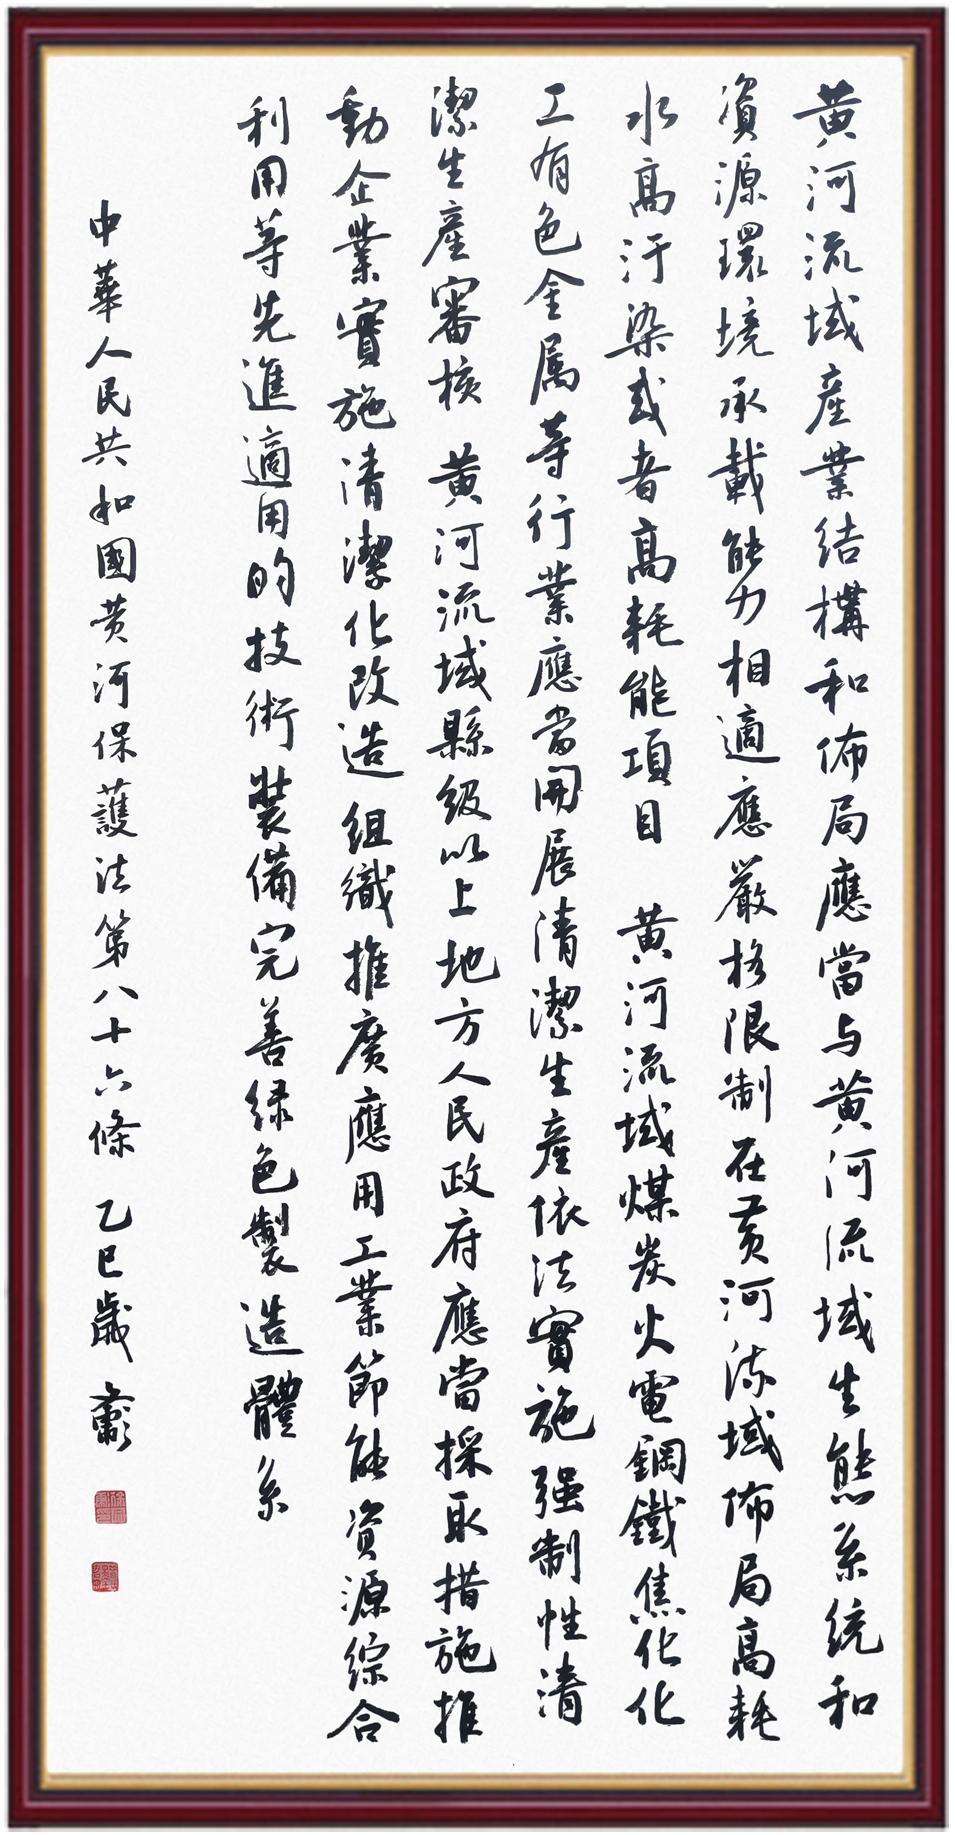 黃河流域産業結構和佈局應當与黃河流域生態系統和
資源環境承載能力相適應嚴格限制在黃河流域佈局高耗
水高汙染或者高耗能項目 黃河流域煤炭火電鋼鐵焦化化
工有色金属等行業應當開展清潔生産依法實施强制性清
潔生産審核 黃河流域縣級以上地方人民政府應當採取措施推
動企業實施清潔化改造 組織推廣應用工業節能資源綜合
利用等先進適用的技術裝備完善緑色製造體系
中華人民共和國黄河保護法第八十六條 乙巳歲